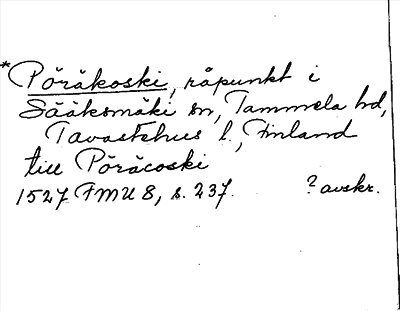 *Pöräkoski, råpunkt i
Sääksmäki sn, Tammela hd,
Tavastehus l., Finland
till Pöräcoski
1527 FMU 8, s. 237. ? avskr.